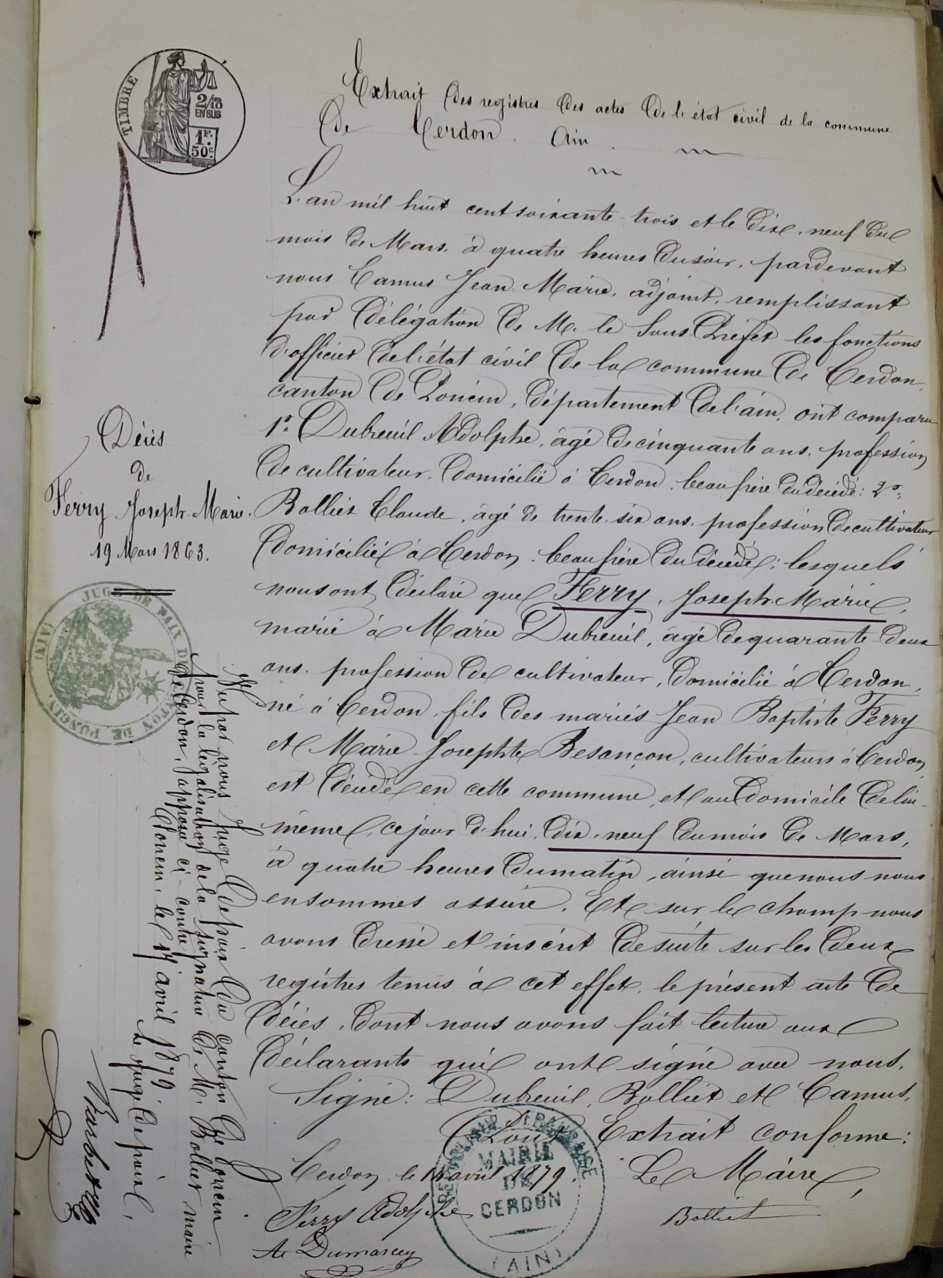 TIMBRE
2/10
EN SUS
1F.
50c.
Extrait des registres des actes de l'état civil de la commune
de Cerdon. Ain.
L'an mil huit cent soixante-trois et le dix-neuf du
mois de Mars, à quatre heures du soir, pardevant
nous Camus Jean Marie, adjoint, remplissant
par délégation de M. le Sous Préfet les fonctions
d'officier de l'état civil de la commune de Cerdon,
canton de Poncin, département de l'ain, ont comparu
1º. Dubreuil Adolphe, âgé de cinquante ans, profession
de cultivateur, domicilié à Cerdon, beau frère du décédé; 2º.
Bolliet Claude, âgé de trente six ans, profession de cultivateur
domicilié à Cerdon, beau frère du décédé; lesquels
nous ont déclaré que Ferry, Joseph-Marie,
marié à Marie Dubreuil, âgé de quarante-deux
ans, profession de cultivateur, domicilié à Cerdon,
né à Cerdon, fils des mariés Jean Baptiste Ferry
et Marie-Josephte Besançon, cultivateurs à Cerdon,
est décédé en cette commune, et au domicile de lui-
même, ce jour d'hui, dix-neuf du mois de Mars,
à quatre heures du matin, ainsi que nous nous
en sommes assuré. Et sur le champ nous
avons dressé et inscrit de suite sur les deux
registres tenus à cet effet, le présent acte de
décès, dont nous avons fait lecture aux
déclarants qui ont signé avec nous.
Signé: Dubreuil, Bolliet et Camus.
Pour Extrait conforme:
Cerdon, le avril 1879.
Le Maire,
Bolliet
Ferry Adolphe
RÉPUBLIQUE FRANÇAISE
MAIRIE
DE
CERDON
(AIN)
Décès
de
Ferry Joseph Marie.
19 Mars 1863.
JUGE DE PAIX DU CANTON DE PONCIN (AIN)
Vu par nous Juge de paix du canton de Poncin
pour la légalisation de la signature de M. Bolliet maire
de Cerdon, apposée ci-contre.
Poncin, le avril 1879
Le Juge de paix,